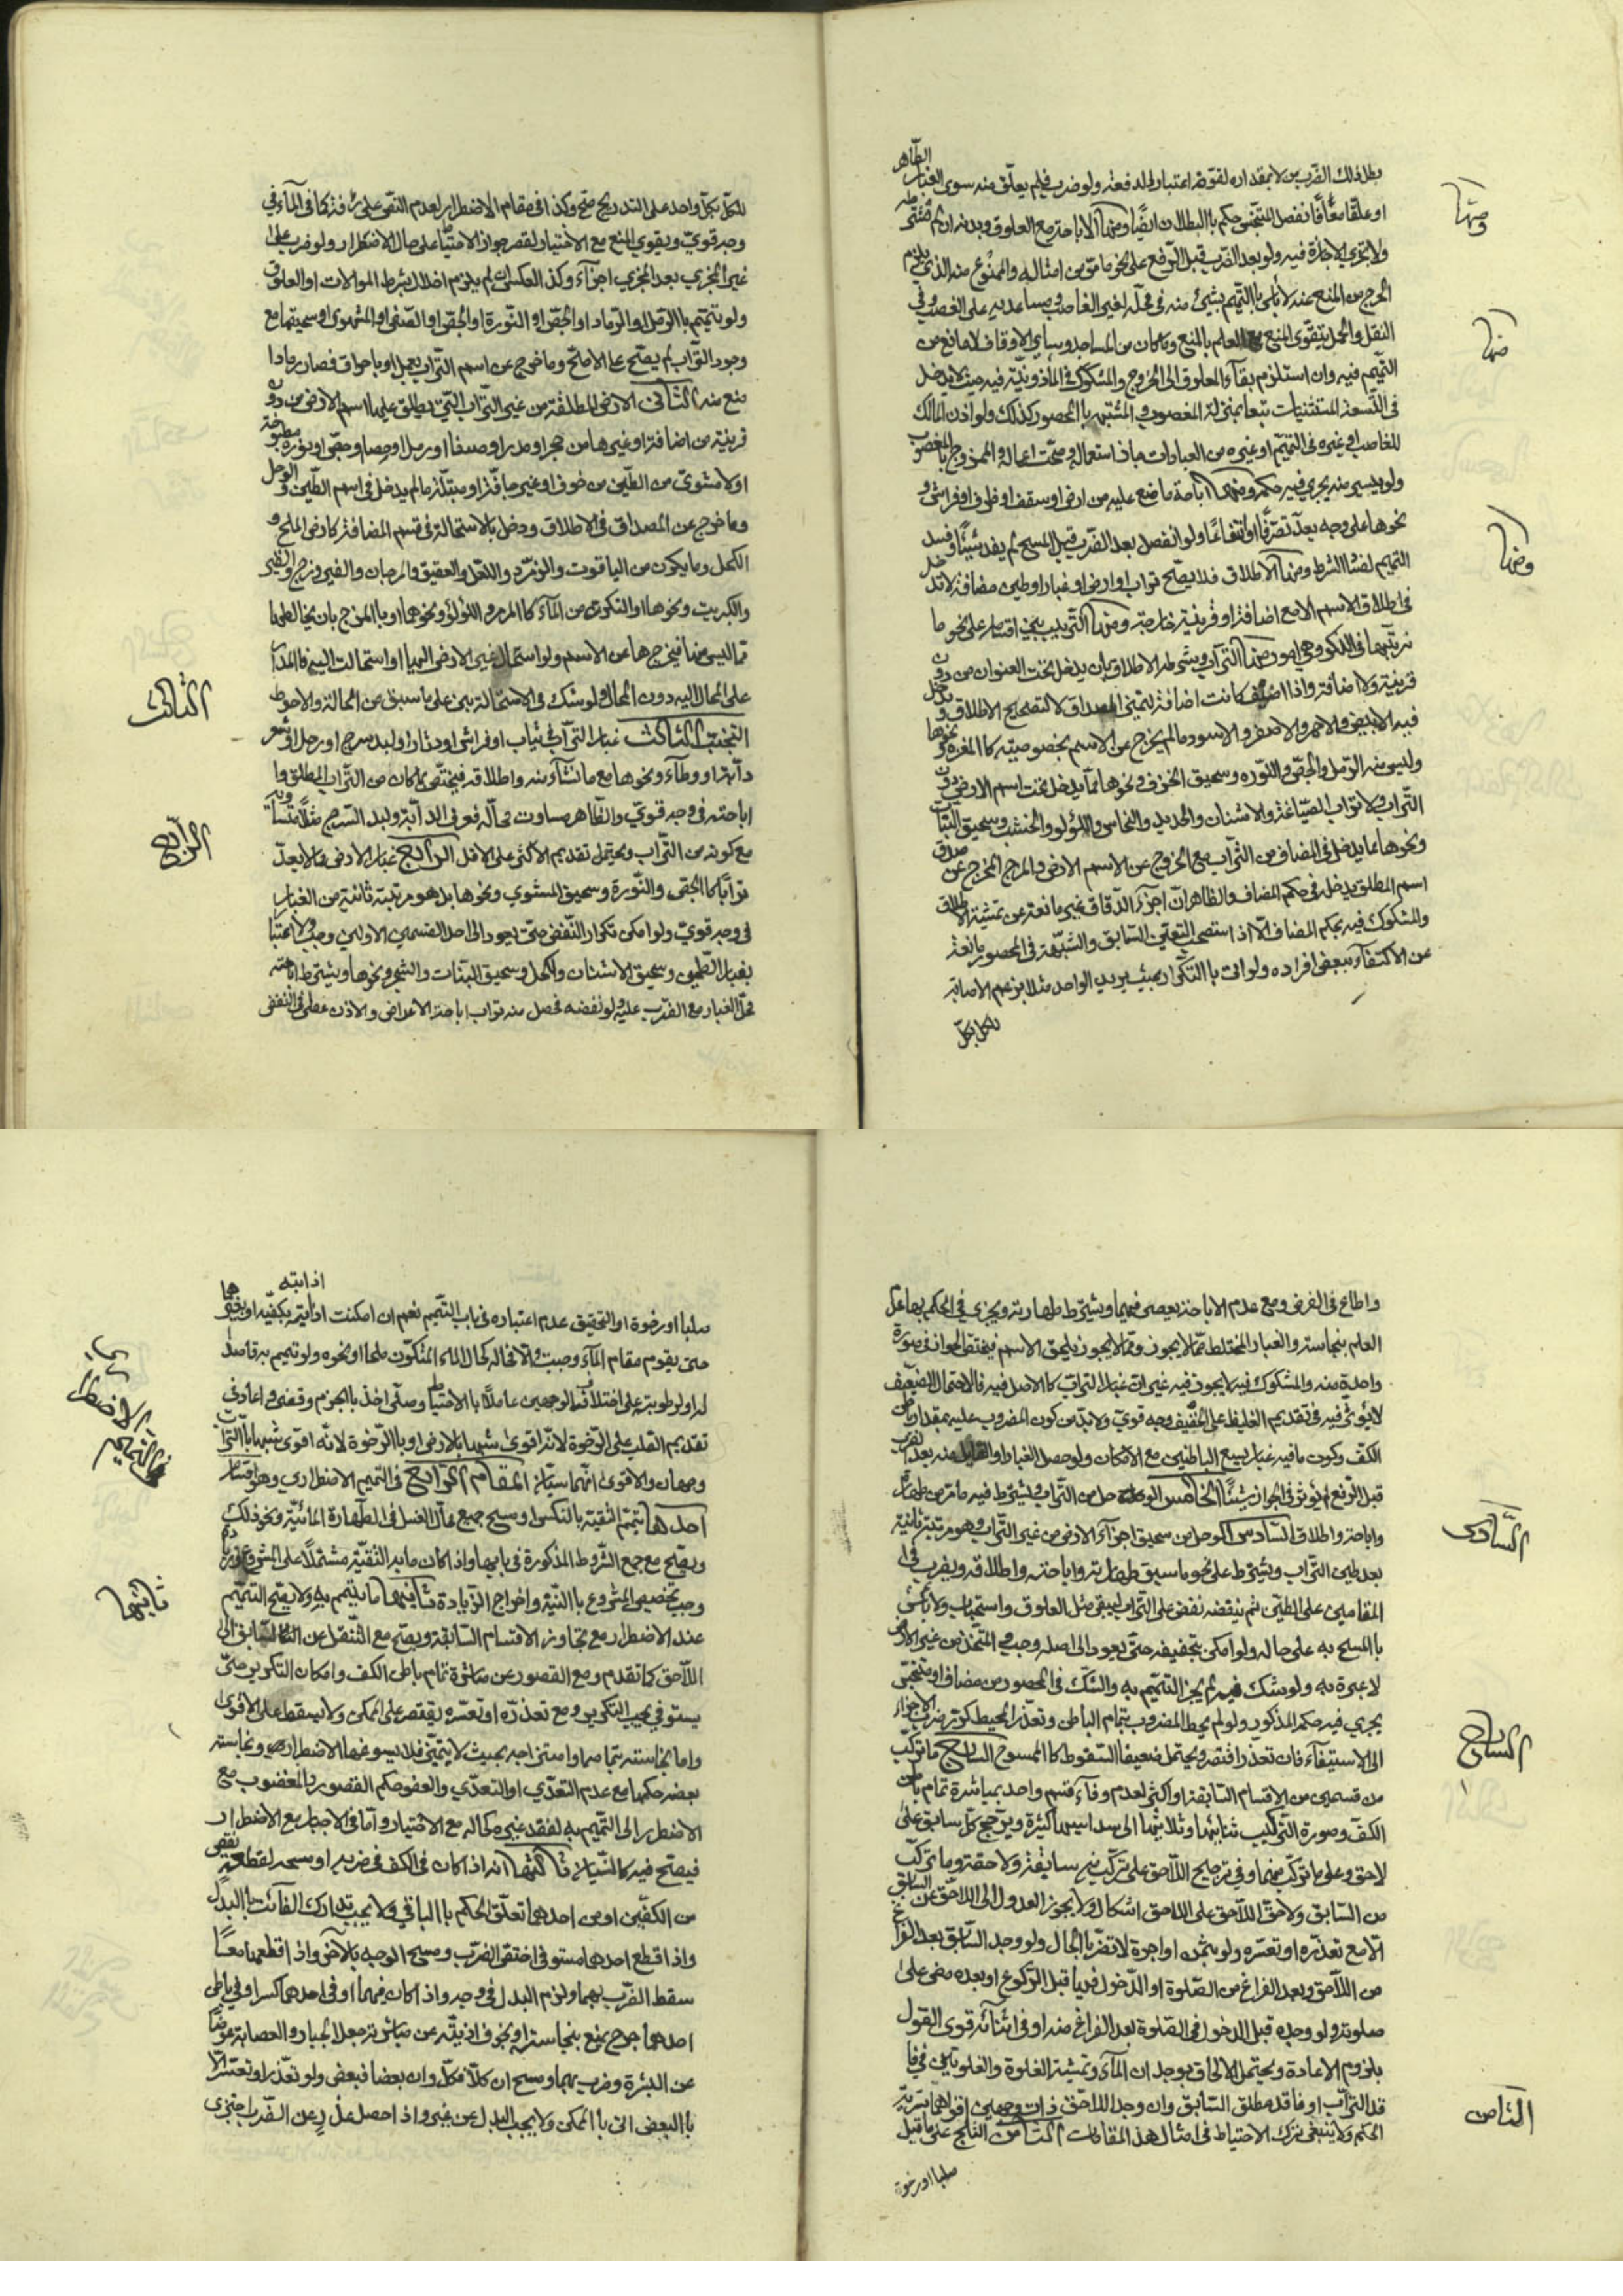 الظاهر
بطل ذلك الضرب من لا بمقداره لقوة اعتبار الدفعة ولو ضرب فلم يعلق منه سوى الغبار
او علقا معا فانفصل المتنجس حكم بالبطلان ايضا ومنها الاباحة مع العلوق وبدونه ان لم
ولا تجزي الاجازة فيه ولو بعد الضرب قبل الرفع على نحو ما مر من امثاله والممنوع منه الذي يلزم
الحرج من المنع عنه لا باس بالتيمم بشيء منه في محله لغير الغاصب ومساعديه على الغصب وفي
النقل والحمل يتقوى المنع مع العلم بالمنع وما كان من المساجد وسائر الاوقاف لا مانع من
التيمم فيه وان استلزم بقاء المعلوق الى الخروج والمشكوك في الماذونية فيه حيث لا يدخل
في التسعة المستثنيات تبعا بمنزلة المغصوب والمشتبه بالمحصور كذلك ولو اذن المالك
للغاصب او غيره في التيمم او غيره من العبادات جاز استعماله وصحت اعماله والممزوج بالمغصوب
ولو يسير منه يجري فيه حكمه ومنها اباحة ما ضع عليه من ارض او سقف او ظرف او فراش و
نحوها على وجه يعد تصرفا او انتفاعا ولو انفصل بعد الضرب قبل المسح لم يفد شيئا وفسد
التيمم لفقد الشرط ومنها الاطلاق فلا يصح تراب او ارض او غبار او طين مضافة لا تدخل
في اطلاق الاسم الا مع اضافة او قرينة خارجية ومنها الترتيب بين اقسامه على نحو ما
نرتبها في الذكر وهي امور منها التراب ويشترط الاطلاق بان يدخل تحت العنوان من دون
قرينة ولا اضافة واذا اضيف كانت اضافة لتميز المصداق لا لتصحيح الاطلاق و يدخل
فيه الابيض والاحمر والاصفر والاسود ما لم يخرج عن الاسم بخصوصيته كالمغرة ونحوها
وليس منه الرمل والجص والنورة وسحيق الخزف ونحوها مما يدخل تحت اسم الارض دون
التراب ولا تراب الصياغة والاشنان والحديد والنحاس واللؤلؤ والخشب وسحيق النبات
ونحوها مما يدخل في المضاف من التراب مع الخروج عن الاسم الارض والمزج المخرج عن صدق
اسم المطلق يدخل في حكم المضاف والظاهر ان اجزاء الدقاق غير مانعة عن تمشية الاطلاق
والمشكوك فيه بحكم المضاف الا اذا استصحب التعين السابق والشبهة في المحصور مانعة
عن الاكتفاء ببعض افراده ولو اتى بالتكرار بحيث يريد الواحد مثلا بزعم الاصابة
للكل بكل
ومنها
منها
ومنها
للكل بكل واحد على التدريج صح وكذا في مقام الاضطرار لعدم النقص على رافة كما في الماء في
وجه قوي ويقوي المنع مع الاختيار لقصر جواز الاحتياط على حال الاضطرار ولو ضرب على
غير المجزي بعد المجزي اجزاء وكذا العكس ان لم يلزم اخلال بشرط الموالات او العلوق
ولو تيمم بالرمل او الرماد او الجص او النورة او الجص او الصفى او المشوى او سحيقها مع
وجود التراب لم يصح على الاصح وما خرج عن اسم التراب بعمل او باحراق فصار رمادا
منع منه الثاني الارض المطلقة من غير التراب التي يطلق عليها اسم الارض من دون
قرينة من اضافة او غيرها من حجر او مدر او صفا او رمل او حصا وجص او نورة مطبوخة
اولا مشوي من الطين من خزف او غيره جافة او مبتلة ما لم يدخل في اسم الطين والوحل
وما خرج عن المصداق في الاطلاق ودخل بالاستحالة في قسم المضافة كارض الملح و
الكحل وما يكون من الياقوت والزمرد واللعل والعقيق والمرجان والفيروزج والزنجفر
والكبريت ونحوها او التكون من الماء كالمرمر واللؤلؤ ونحوهما او بالمزج بان يخالطها
مما ليس منها فيخرجها عن الاسم ولو استحال غير الارض اليها او استحالت اليه فالمدار
على الحال اليه دون المحال ولو شك في الاستحالة بنى على ما سبق من الحالة والاحوط
التجنب الثالث غبار التراب في ثياب او فراش او دثار او لبد سرج او رحل او شعر
دابة او وطاء ونحوها مع ما نشاء منه واطلاقه فيختص بما كان من التراب المطلق وا
اباحته في وجه قوي والظاهر مساوت محاله فعرف الدابة ولبد السرج مثلا متساويان
مع كونه من التراب ويحتمل تقديم الاكثر على الاقل الرابع غبار الارض ولا يعد
ترابا كالجص والنورة وسحيق المشوي ونحوها بل هو مرتبة ثانية من الغبار
في وجه قوي ولو امكن تكرار النفض حتى يعود الى احد القسمين الاولين وجب ولا اعتبار
بغبار الطحين وسحيق الاشنان والكحل وسحيق النبات والشجر ونحوها ويشترط اباحته
محل الغبار مع الضرب عليه ولو نفضه فحصل منه تراب اباحة الاعراض والاذن عطى في النفض
الثالث
الرابع
واطاع في الفرض ومع عدم الاباحة يعصى فيهما ويشترط طهارته ويجزي في الحكم بها عدم
العلم بنجاسته والغبار المختلط مما لا يجوز ومما لا يجوز يلحق الاسم مقتضى الجواز في صورة
واحدة منه والمشكوك فيه لا يجوز فيه غير ان غبار التراب كالاصل فيه فالاحتمال الضعيف
لا يؤثر فيه في تقديم الغليظ على الخفيف وجه قوي ولا بد من كون المضروب عليه بمقدار باطن
الكف وكون ما فيه غبار يسع الباطنين مع الامكان ولو حصل الغبار او المقابل منه بعد الضرب
قبل الرفع لم يؤثر في الجواز شيئا الخامس الوحل من التراب ويشترط فيه ما مر من طهارة
واباحة واطلاق السادس الوحل من سحيق اجزاء الارض من غير التراب وهو مرتبة ثانية
بعد طين التراب ويشترط على نحو ما سبق طهارته واباحته واطلاقه ويضرب في
المقامين على الطين ثم ينفضه نفض على التراب ليبقى مثل العلوق واستحباب ولا باس
بالمسح به على حاله ولو امكن تجفيفه حتى يعود الى اصله وجب والمتخذ من غير الارض
لا عبرة به ولو شك فيه لم يجز التيمم به والشك في المحصور من مضاف او متنجس
يجري فيه حكم المذكور ولو لم يحط المضروب بتمام الباطن وتعذر المحيط كرر ضرب الاجزاء
الى الاستيفاء فان تعذر اقتصر ويحتمل ضعيفا السقوط كالممسوح السابع ما تركب
من قسمين من الاقسام السابقة او اكثر لعدم وفاء قسم واحد بمباشرة تمام باطن
الكف وصورة التركيب ثنائيها وثلاثيها الى سداسيها كثيرة ويرجح كل سابق على
لاحق وعلى ما تركب منهما وفي ترجيح اللاحق على تركب من سابقة ولاحقة وما تركب
من السابق ولاحق اللاحق على اللاحق اشكال ولا يجوز العدول الى اللاحق عن السابق
الا مع تعذره او تعسره ولو بثمن او اجرة لا تضر بالحال ولو وجد السابق بعد الفراغ
من اللاحق وبعد الفراغ من الصلوة او الدخول فيها قبل الركوع او بعده مضى على
صلوته ولو وجده قبل الدخول في الصلوة بعد الفراغ منه او في اثنائه قوى القول
بلزوم الاعادة ويحتمل الالحاق بوجدان الماء وتمشية الغلوة والغلوتين في فا
قد التراب او فاقد مطلق السابق وان وجد اللاحق ذات وجهين اقواهما تسرية
الحكم ولا ينبغي ترك الاحتياط في امثال هذه المقامات الثامن الثلج على ما قيل
صلبا او رخوة
السادس
السابع
الثامن
اذابته
صلبا او رخوة او التحقيق عدم اعتباره في باب التيمم نعم ان امكنت اذابته بكفيه او بنحوهما
حتى يقوم مقام الماء وجبت والا فحاله كحال الماء المتكون ملحا او نحوه ولو تيمم به قاصدا
له او لرطوبته على اختلاف الوجهين عاملا بالاحتياط وصلى اخذ بالجزم وقضى واعاد في
تقديم القلب على الرخوة لانه اقوى شبها بالارض او بالرخوة لانه اقوى شبها بالتراب
وجهان والاقوى انهما سيان المقام الرابع في التيمم الاضطراري وهو اقسام
احدها تيمم التقية بالتكس او مسح جميع محال الغسل في الطهارة المائية ونحو ذلك
ويصح مع جمع الشروط المذكورة في بابها واذا كان ما به التقية مشتملا على المشروع وزيادة
وجب تخصيص المشروع بالنية واخراج الزيادة ثانيها ما يتيمم به ولا يصح التيمم
عند الاضطرار مع تجاوز الاقسام السابقة ويصح مع التنقل عن السابق الى
اللاحق كما تقدم ومع القصور عن مباشرة تمام باطن الكف وامكان التكرير حتى
يستوفي يجب التكرير ومع تعذره او تعسره يقتصر على الممكن ولا يسقط على الاقوى
واما نجاسته بتمامها وامتزاجه بحيث لا يتميز فلا يسوغها الاضطرار ونجاسته
بعضه حكمها مع عدم التعدي او التعدي والعفو حكم القصور والمغصوب مع
الاضطرار الى التيمم به لفقد غيره كحاله مع الاختيار واما في الاجبار مع الاضطرار
فيصح فيه كالنسيان ثالثها انه اذا كان في الكف في ضربه او مسحه لقطعه نقص
من الكفين او من احدهما تعلق الحكم بالباقي ولا يجب تدارك الفائت بالبدل
واذا قطع احدهما مستوفى اختص الضرب ومسح الوجه بالاخر واذا قطعهما معا
سقط الضرب بهما ولزم البدل في وجه واذا كان فيهما او في احدهما كسر او في باطن
احدهما جرح يمنع بنجاسته او بخوف اذيته عن مباشرته جعل الجبار والعصابة عوضا
عن البشرة وضرب بهما ومسح ان كلا فكل وان بعضا فبعض ولو تعذر او تعسر الا
بالبعض اتى بالممكن ولا يجب البدل عن غيره واذا حصل عذر عن الضرب اجتزى
في التيمم الاضطراري
ثانيها